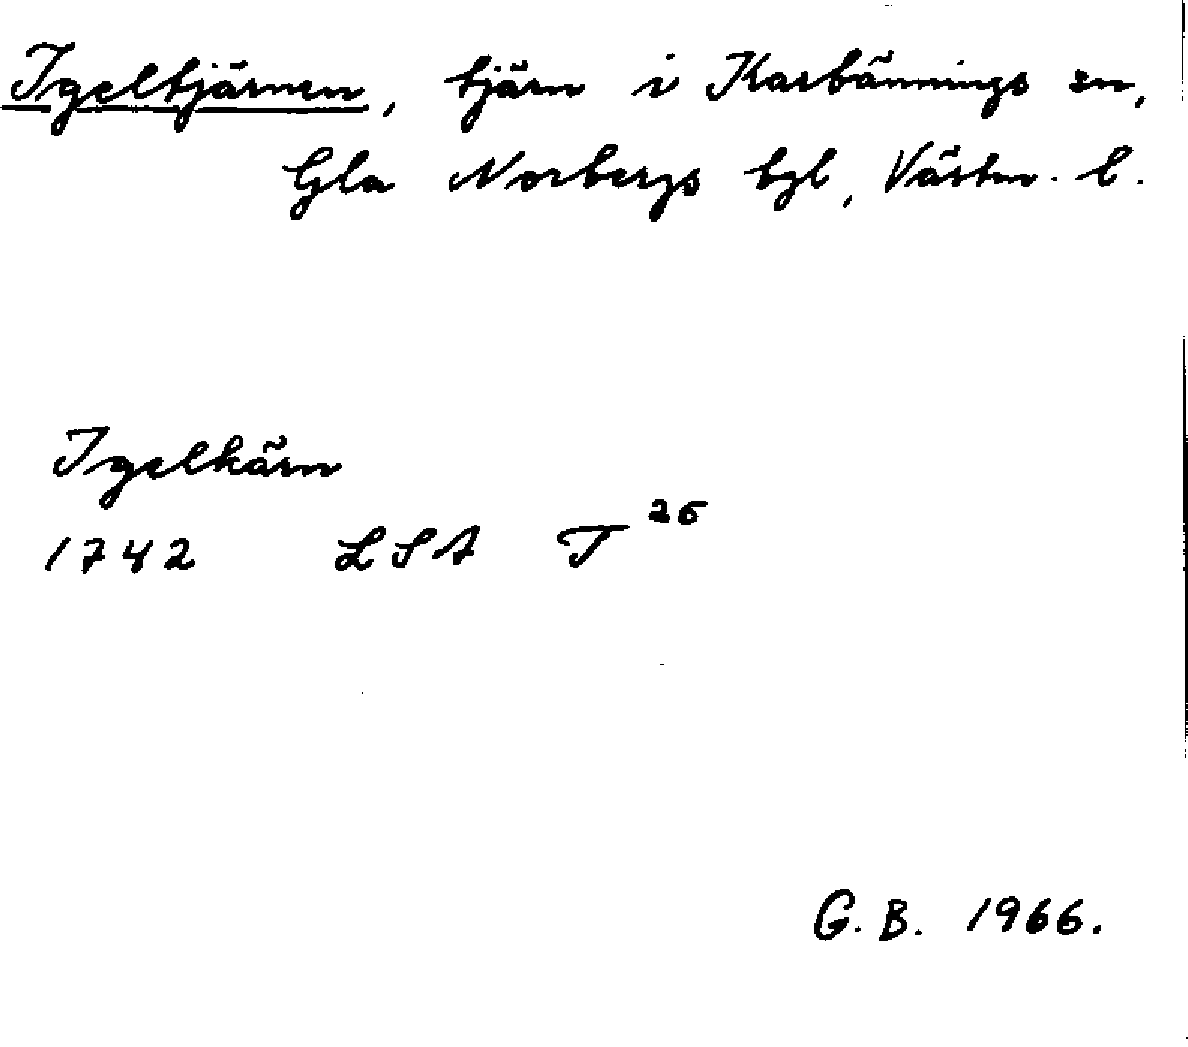 Igeltjärnen, tjärn i Karbännings sn,
Gla Norbergs bgl, Västm. l.
Igelkärn
1742 LSA T 26
G. B. 1966.